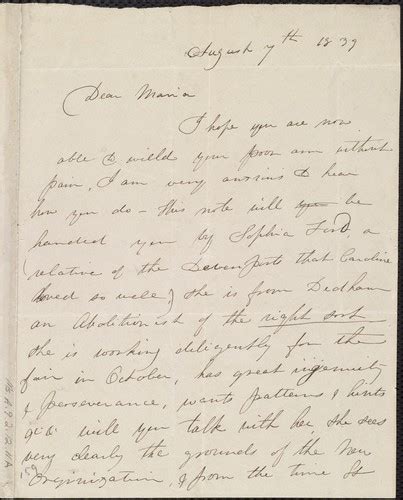 August 7th 1839
Dear Maria
I hope you are now
able to wield your poor arm without
pain, I am very anxious to hear
how you do - this note will be
handed you by Sophia Ford a
(relative of the Devenports that Caroline
loved so well) she is from Dedham
an Abolitionist of the right sort
she is working diligently for the
fair in October, has great ingenuity
& perseverance, wants patterns & hints
will you talk with her, she sees
very clearly the grounds of the New
Organization, & from the time It